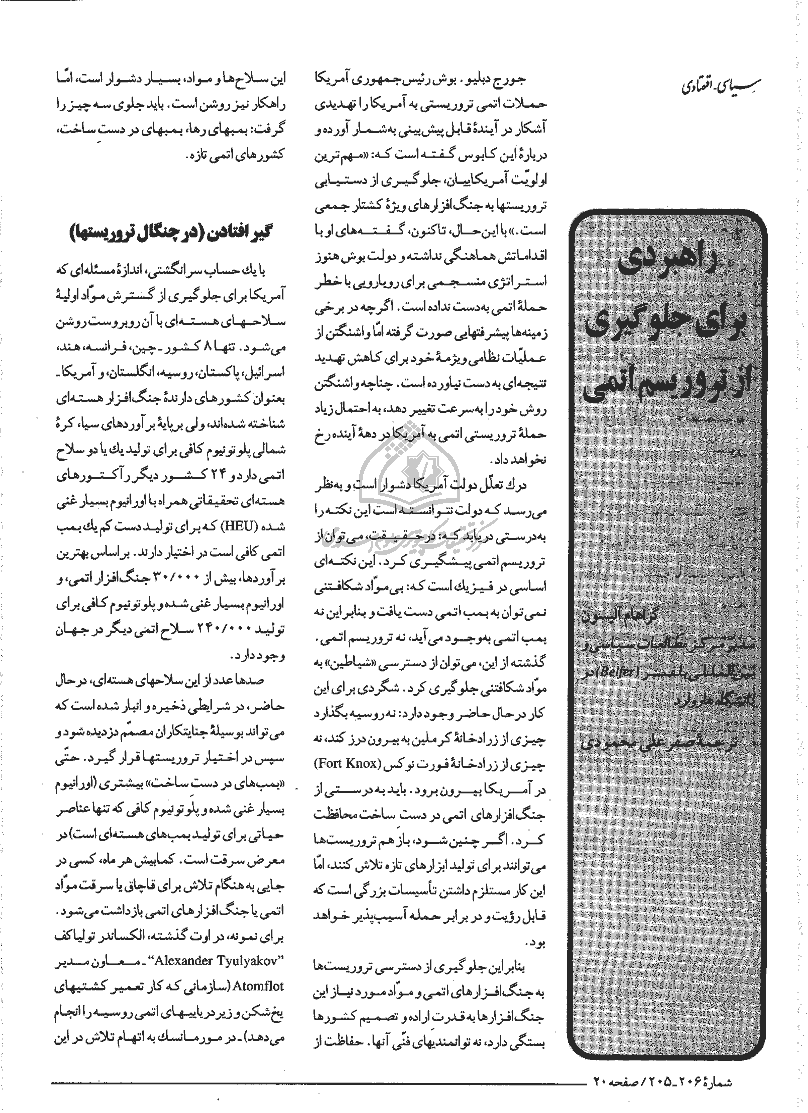 سیاسی-اقتصادی
راهبردی
برای جلوگیری
از تروریسم اتمی
گراهام آلیسون
مدیر مرکز مطالعات سیاسی و
بین‌المللی بلفر (Belfer) در
دانشگاه هاروارد
ترجمهٔ صفرعلی محمودی
جورج دبلیو. بوش رئیس‌جمهوری آمریکا
حملات اتمی تروریستی به آمریکا را تهدیدی
آشکار در آیندهٔ قابل پیش‌بینی به‌شمار آورده و
دربارهٔ این کابوس گفته است که: «مهم‌ترین
اولویّت آمریکاییان، جلوگیری از دستیابی
تروریستها به جنگ‌افزارهای ویژهٔ کشتار جمعی
است.» با این حال، تاکنون، گفته‌های او با
اقداماتش هماهنگی نداشته و دولت بوش هنوز
استراتژی منسجمی برای رویارویی با خطر
حملهٔ اتمی به‌دست نداده است. اگرچه در برخی
زمینه‌ها پیشرفتهایی صورت گرفته امّا واشنگتن از
عملیّات نظامی ویژهٔ خود برای کاهش تهدید
نتیجه‌ای به دست نیاورده است. چنانچه واشنگتن
روش خود را به سرعت تغییر دهد، به احتمال زیاد
حملهٔ تروریستی اتمی به آمریکا در دههٔ آینده رخ
نخواهد داد.
درك تعلّل دولت آمریکا دشوار است و به‌نظر
می‌رسد که دولت نتوانسته است این نکته را
به‌درستی دریابد که: در حقیقت، می‌توان از
تروریسم اتمی پیشگیری کرد. این نکته‌ای
اساسی در فیزیك است که: بی‌موادّ شکافتنی
نمی‌توان به بمب اتمی دست یافت و بنابراین نه
بمب اتمی به‌وجود می‌آید، نه تروریسم اتمی.
گذشته از این، می‌توان از دسترسی «شیاطین» به
موادّ شکافتنی جلوگیری کرد. شگردی برای این
کار در حال حاضر وجود دارد: نه روسیه بگذارد
چیزی از زرادخانهٔ کرملین به بیرون درز کند، نه
چیزی از زرادخانهٔ فورت نوکس (Fort Knox)
در آمریکا بیرون برود. باید به درستی از
جنگ‌افزارهای اتمی در دست ساخت محافظت
کرد. اگر چنین شود، باز هم تروریست‌ها
می‌توانند برای تولید ابزارهای تازه تلاش کنند، امّا
این کار مستلزم داشتن تأسیسات بزرگی است که
قابل رؤیت و در برابر حمله آسیب‌پذیر خواهد
بود.
بنابراین جلوگیری از دسترسی تروریست‌ها
به جنگ‌افزارهای اتمی و موادّ مورد نیاز این
جنگ‌افزارها به قدرت اراده و تصمیم کشورها
بستگی دارد، نه توانمندیهای فنّی آنها. حفاظت از
این سلاح‌ها و مواد، بسیار دشوار است، امّا
راهکار نیز روشن است. باید جلوی سه چیز را
گرفت: بمبهای رها، بمبهای در دستِ ساخت،
کشورهای اتمی تازه.
گیر افتادن (در چنگال تروریستها)
با یك حساب سرانگشتی، اندازهٔ مسئله‌ای که
آمریکا برای جلوگیری از گسترش موادّ اولیهٔ
سلاحهای هسته‌ای با آن روبروست روشن
می‌شود. تنها ۸ کشور ـ چین، فرانسه، هند،
اسرائیل، پاکستان، روسیه، انگلستان، و آمریکا ـ
بعنوان کشورهای دارندهٔ جنگ‌افزار هسته‌ای
شناخته شده‌اند، ولی بر پایهٔ برآوردهای سیا، کرهٔ
شمالی پلوتونیوم کافی برای تولید یك یا دو سلاح
اتمی دارد و ۲۴ کشور دیگر رآکتورهای
هسته‌ای تحقیقاتی همراه با اورانیوم بسیار غنی
شده (HEU) که برای تولید دست کم یك بمب
اتمی کافی است در اختیار دارند. بر اساس بهترین
برآوردها، بیش از ۳۰/۰۰۰ جنگ‌افزار اتمی، و
اورانیوم بسیار غنی شده و پلوتونیوم کافی برای
تولید ۲۴۰/۰۰۰ سلاح اتمی دیگر در جهان
وجود دارد.
صدها عدد از این سلاحهای هسته‌ای، در حال
حاضر، در شرایطی ذخیره و انبار شده است که
می‌تواند بوسیلهٔ جنایتکاران مصمّم دزدیده شود و
سپس در اختیار تروریستها قرار گیرد. حتّی
«بمب‌های در دست ساخت» بیشتری (اورانیوم
بسیار غنی شده و پلوتونیوم کافی که تنها عناصر
حیاتی برای تولید بمب‌های هسته‌ای است) در
معرض سرقت است. کمابیش هر ماه، کسی در
جایی به هنگام تلاش برای قاچاق یا سرقت موادّ
اتمی یا جنگ‌افزارهای اتمی بازداشت می‌شود.
برای نمونه، در اوت گذشته، الکساندر تولیاکف
“Alexander Tyulyakov” ـ معاون مدیر
Atomflot (سازمانی که کار تعمیر کشتیهای
یخ‌شکن و زیردریاییهای اتمی روسیه را انجام
می‌دهد) ـ در مورمانسك به اتهام تلاش در این
شمارهٔ ۲۰۶ـ۲۰۵ / صفحه ۲۰